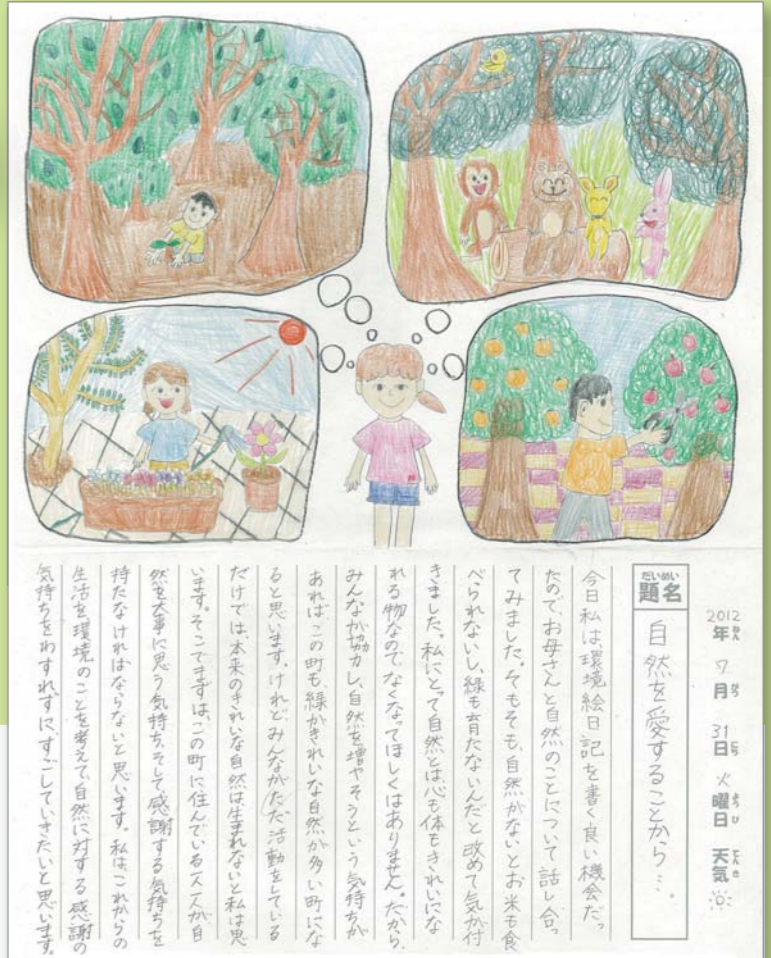 2012年ねん 7月がつ 31日にち 火曜日ようび 天気てんき
題名だいめい 自然を愛することから…。
今日私は環境絵日記を書く良い機会だっ
たので、お母さんと自然のことについて話し合っ
てみました。そもそも、自然がないとお米も食
べられないし、緑も育たないんだと改めて気が付
きました。私にとって自然とは心も体もきれいにな
れる物なので、なくなってほしくはありません。だから、
みんなが協力し、自然を増やそうという気持ちが
あればこの町も、緑がきれいな自然が多い町にな
ると思います。けれどみんながただ活動をしている
だけでは、本来のきれいな自然は生まれないと私は思
います。そこでまずは、この町に住んでいる一人一人が自
然を大事に思う気持ち、そして感謝する気持ちを
持たなければならないと思います。私はこれからの
生活を環境のことを考えて、自然に対する感謝の
気持ちをわすれずに、すごしていきたいと思います。